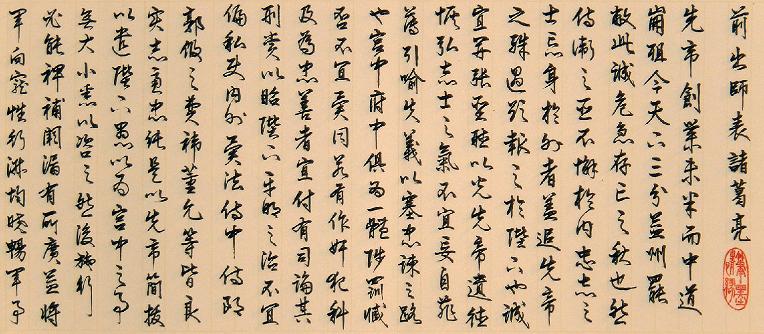 前出師表諸葛亮
先帝創業未半而中道
崩殂今天下三分益州罷
敝此誠危急存亡之秋也然
侍衛之臣不懈於內忠志之
士忘身於外者蓋追先帝
之殊遇欲報之於陛下也誠
宜開張聖聽以光先帝遺德
恢弘志士之氣不宜妄自菲
薄引喻失義以塞忠諫之路
也宮中府中俱為一體陟罰臧
否不宜異同若有作奸犯科
及為忠善者宜付有司論其
刑賞以昭陛下平明之治不宜
偏私使內外異法侍中侍郎
郭攸之費禕董允等皆良
實志慮忠純是以先帝簡拔
以遺陛下愚以為宮中之事
無大小悉以咨之然後施行
必能裨補闕漏有所廣益將
軍向寵性行淑均曉暢軍事